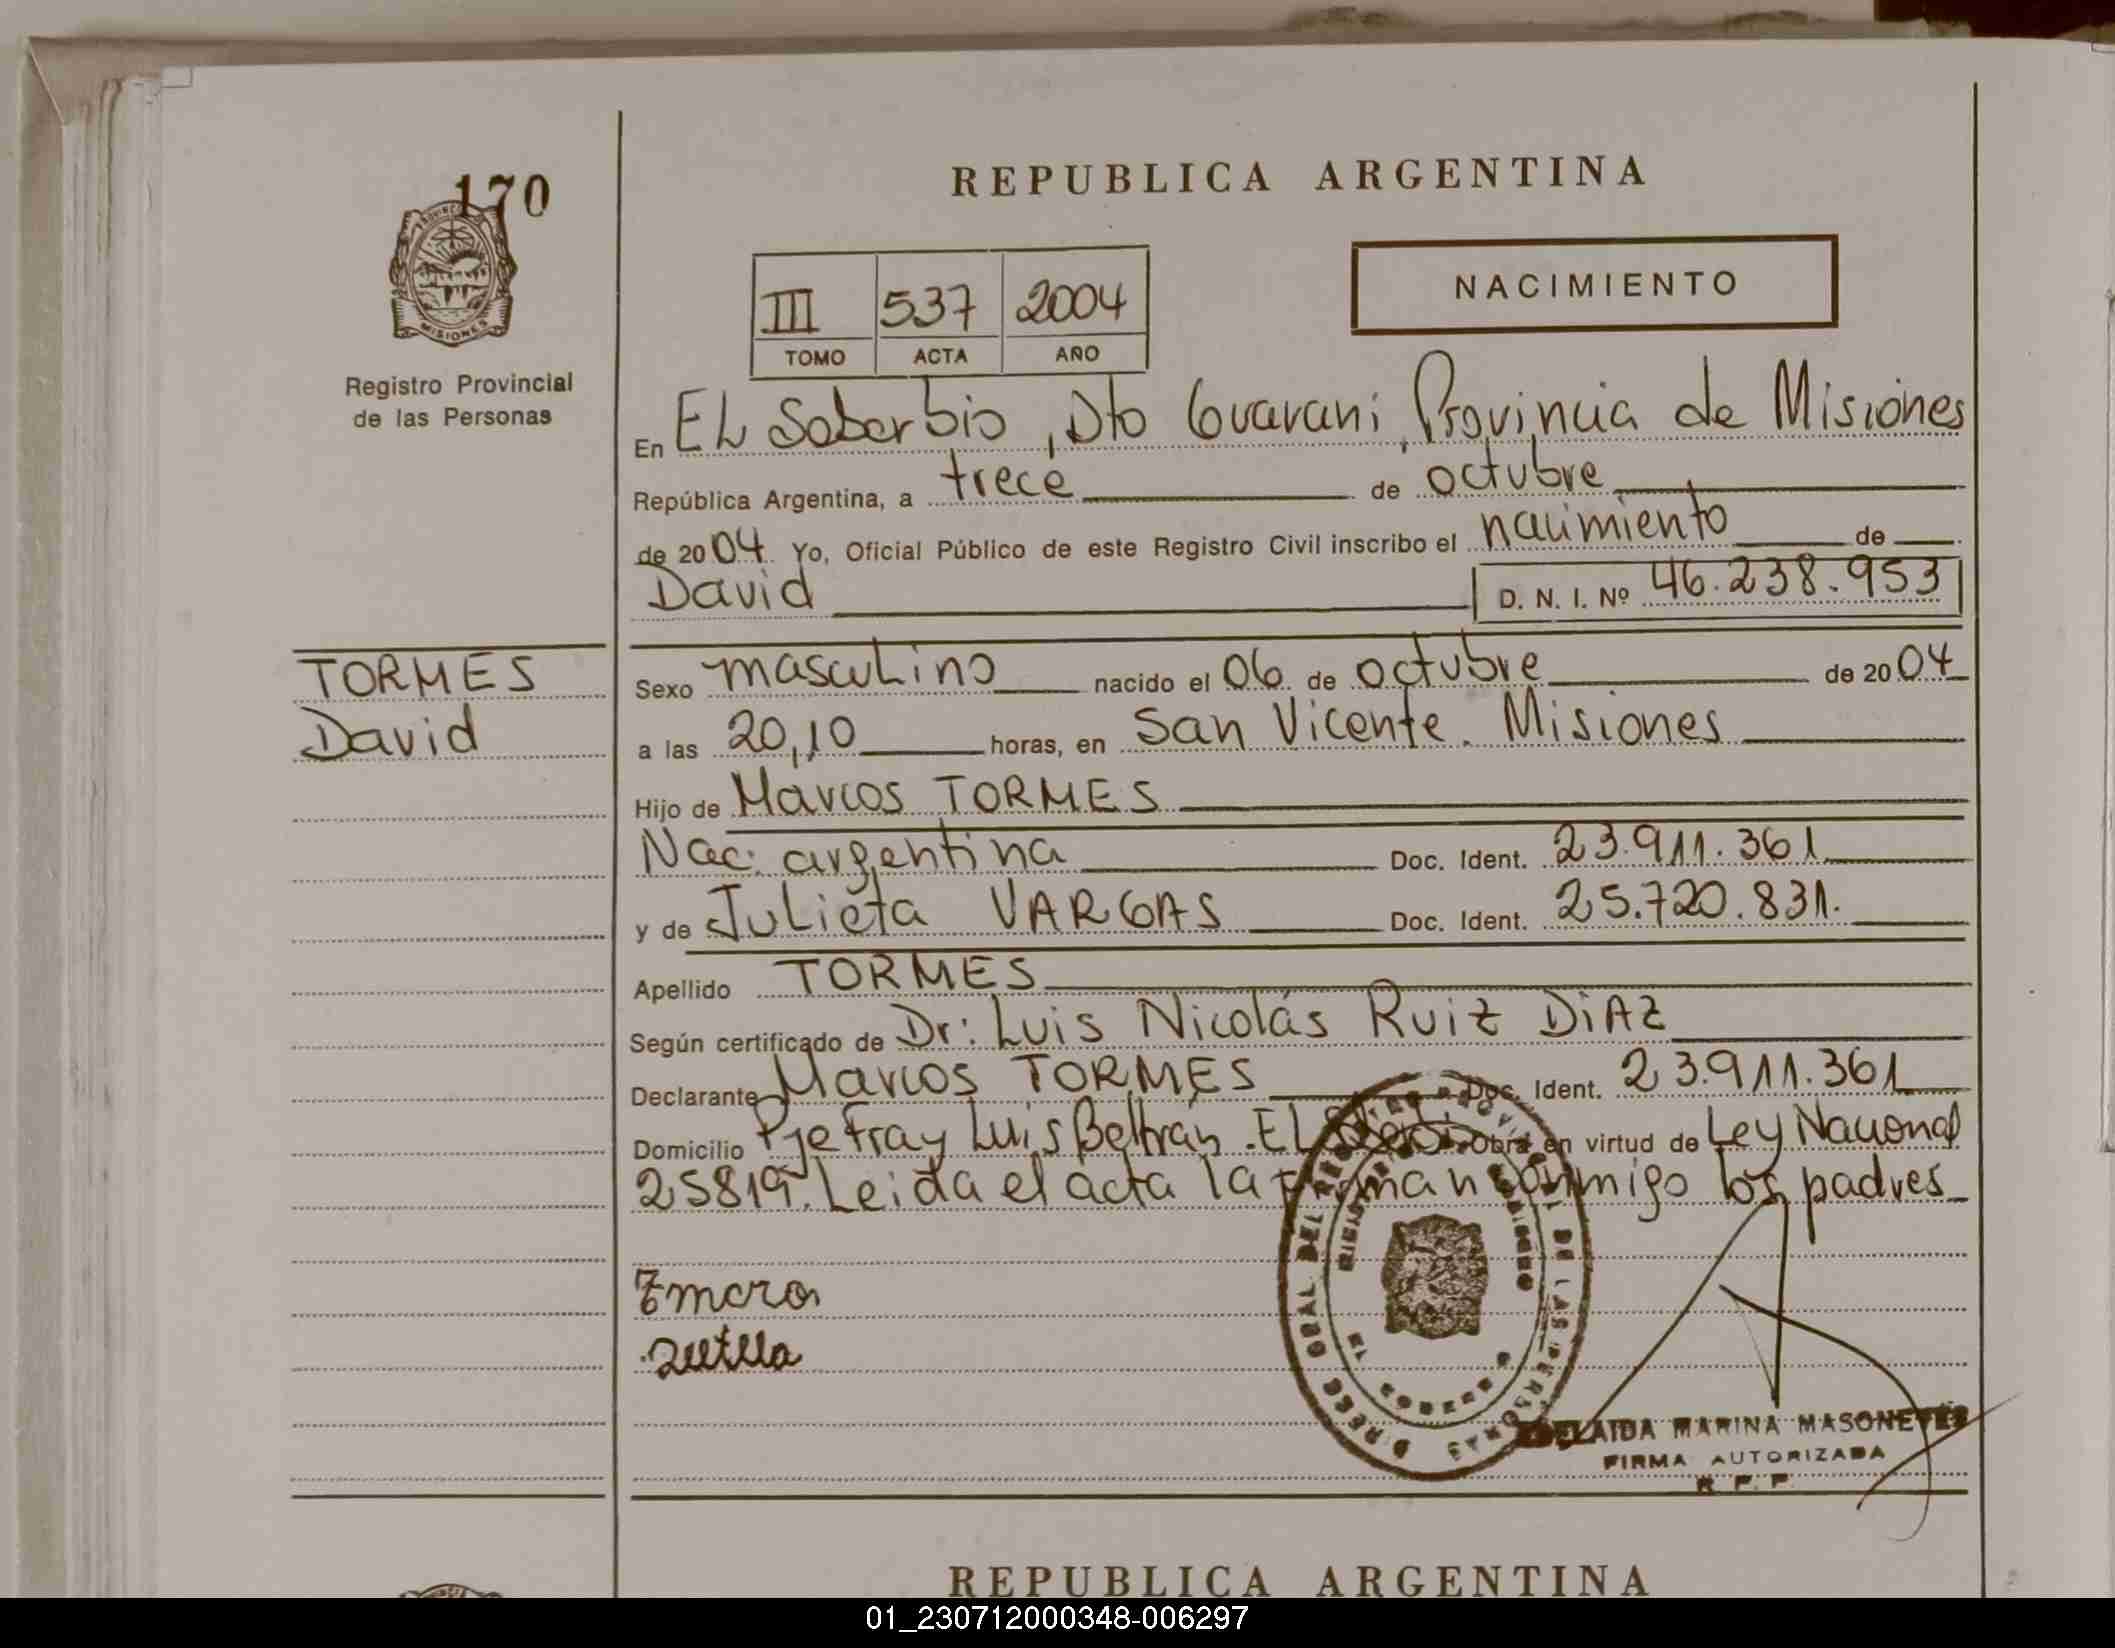 170
REPUBLICA ARGENTINA
NACIMIENTO
III 537 2004
TOMO ACTA AÑO
Registro Provincial
de las Personas
En EL Soberbio, Dto Guaraní, Provincia de Misiones
República Argentina, a trece de octubre
de 2004 Yo, Oficial Público de este Registro Civil inscribo el nacimiento de
David D. N. I. Nº 46.238.953
TORMES
David
Sexo masculino nacido el 06 de octubre de 2004
a las 20,10 horas, en San Vicente. Misiones
Hijo de Marcos TORMES
Nac: argentina Doc. Ident. 23.911.361
y de Julieta VARGAS Doc. Ident. 25.720.831.
Apellido TORMES
Según certificado de Dr: Luis Nicolás Ruiz DiAZ
Declarante Marcos TORMES Doc. Ident. 23.911.361
Domicilio Pje Fray Luis Beltrán. EL Obra en virtud de Ley Nacional
25819. Leida el acta la firman conmigo los padres
MISIONES
DIRECC GRAL DEL REGISTRO PROVINCIAL DE LAS PERSONAS
MARINA MASONEVES
FIRMA AUTORIZADA
R. P. P.
REPUBLICA ARGENTINA
01_230712000348-006297